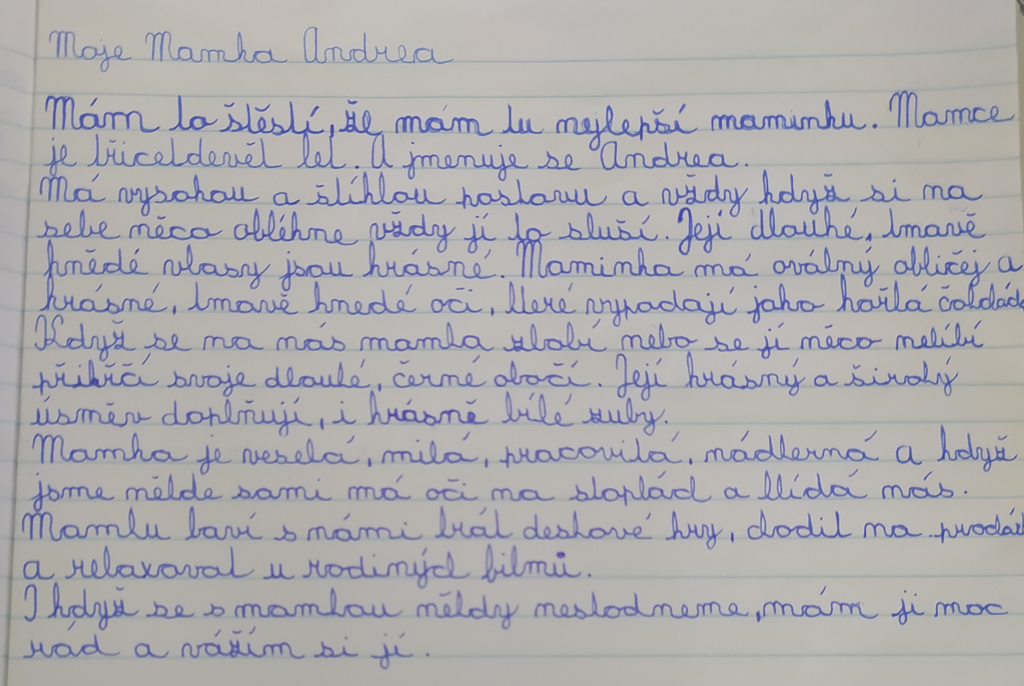 Moje Mamka Andrea
Mám to štěstí, že mám tu nejlepší maminku. Mamce
je třicetdevět let. A jmenuje se Andrea.
Má vysokou a štíhlou postavu a vždy když si na
sebe něco obléhne vždy jí to sluší. Její dlouhé, tmavě
hnědé vlasy jsou krásné. Maminka má oválný obličej a
krásné, tmavě hnedé oči, které vypadají jako hořká čokoláda
Když se na nás mamka zlobí nebo se jí něco nelíbí
přikřčí svoje dlouhé, černé obočí. Její krásný a široký
úsměv doplňují, i krásně bílé zuby.
Mamka je veselá, milá, pracovitá, nádherná a když
jsme někde sami má oči na stopkách a hlídá nás.
Mamku baví s námi hrát deskové hry, chodit na procház
a relaxovat u rodiných filmů.
I když se s mamkou někdy neshodneme, mám ji moc
rád a vážím si jí.